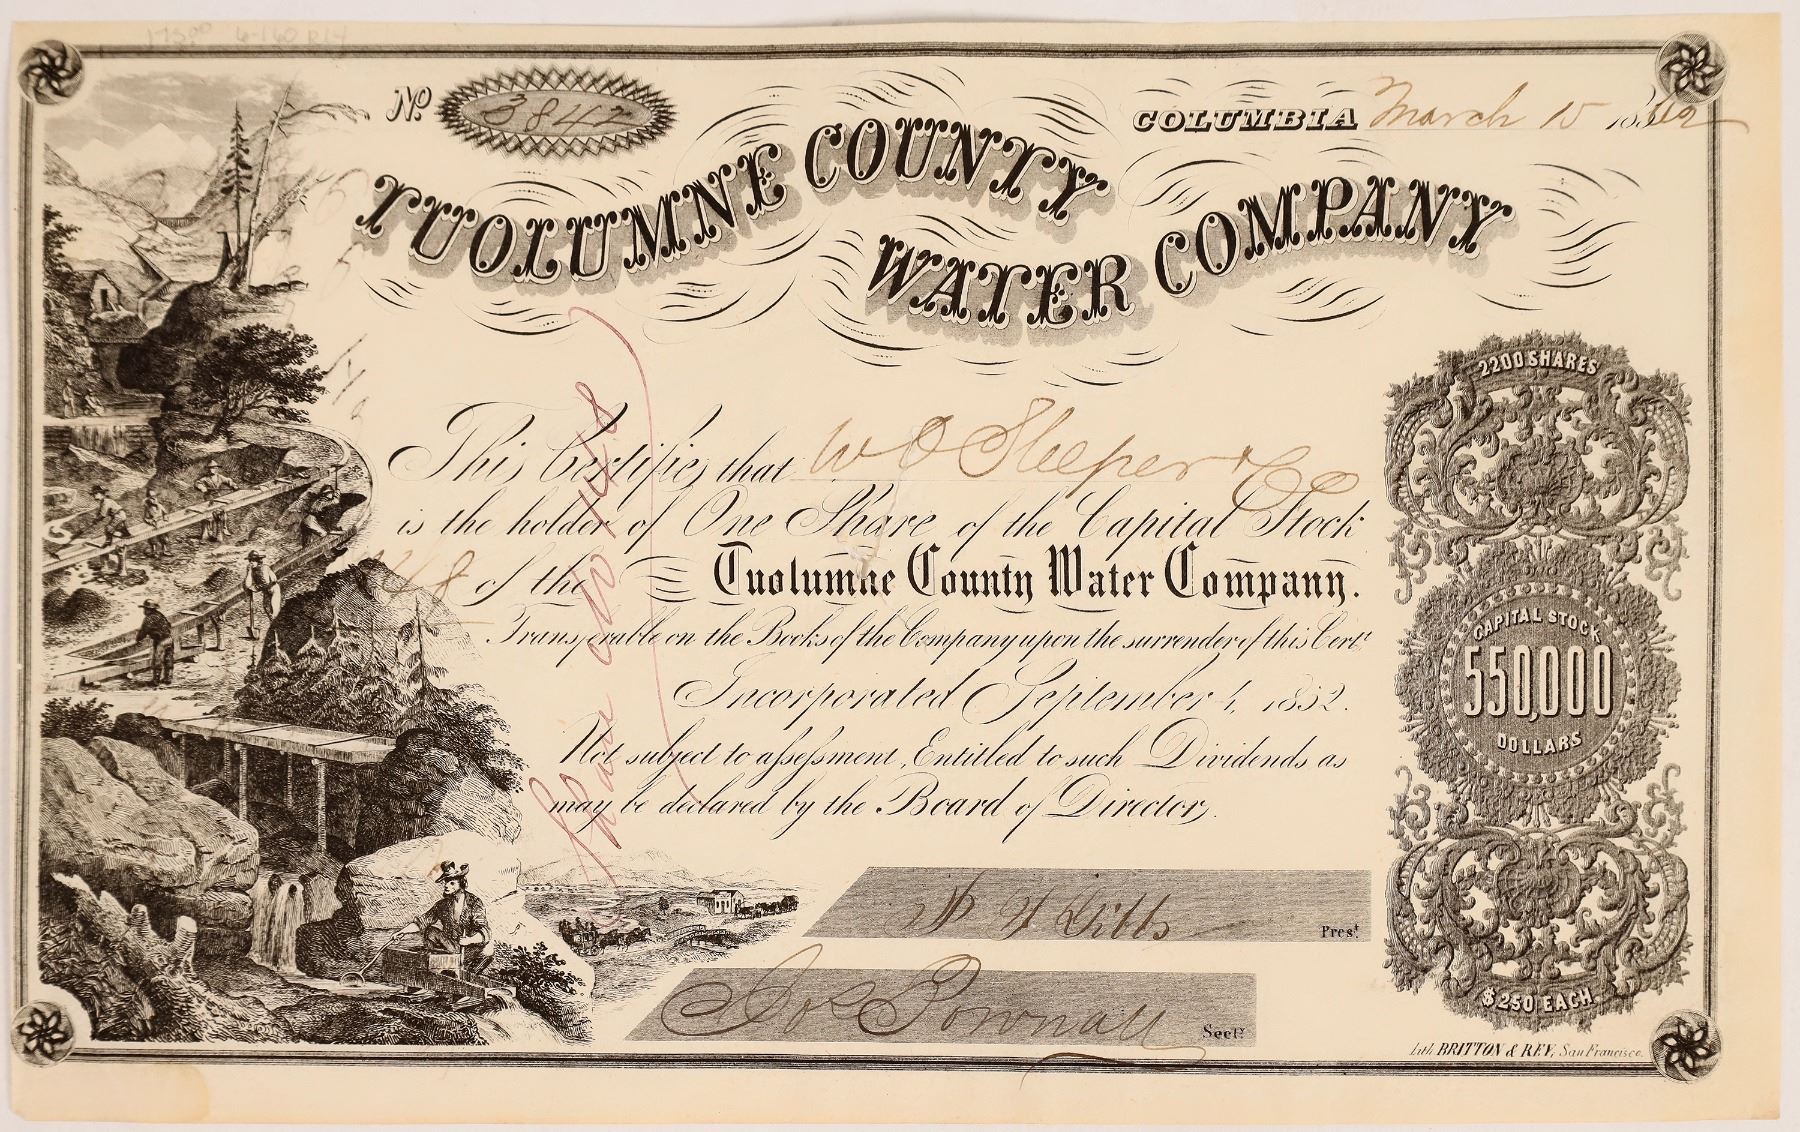 6-160 R14
No. 3842
COLUMBIA March 15 1862
TUOLUMNE COUNTY
WATER COMPANY
This Certifies that W O Sleeper & Co
is the holder of One Share of the Capital Stock
of the Tuolumne County Water Company.
Transferable on the Books of the Company upon the surrender of this Cert.
Incorporated September 4, 1852.
Not subject to assessment, Entitled to such Dividends as
may be declared by the Board of Directors.
2200 SHARES
CAPITAL STOCK
550,000
DOLLARS
$250 EACH
Prest.
Jos Pownall Secty.
Lith. BRITTON & REY, San Francisco.